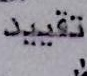 تقييد